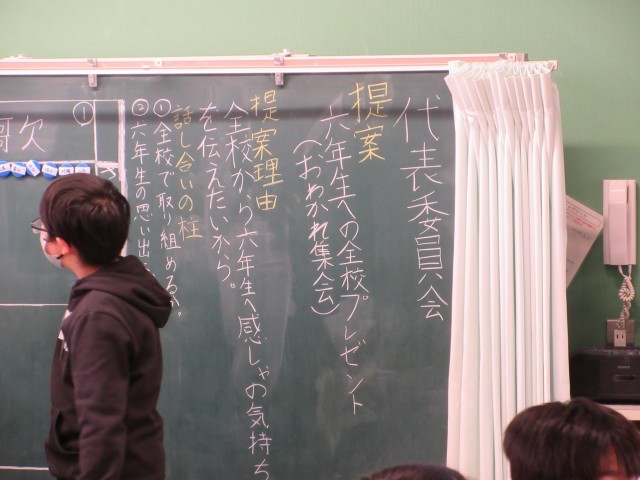 代表委員会
提案
六年生への全校プレゼント
(おわかれ集会)
提案理由
全校から六年生へ感しゃの気持ち
を伝えたいから。
話し合いの柱
①全校で取り組めるか。
②六年生の思い出
①
歌